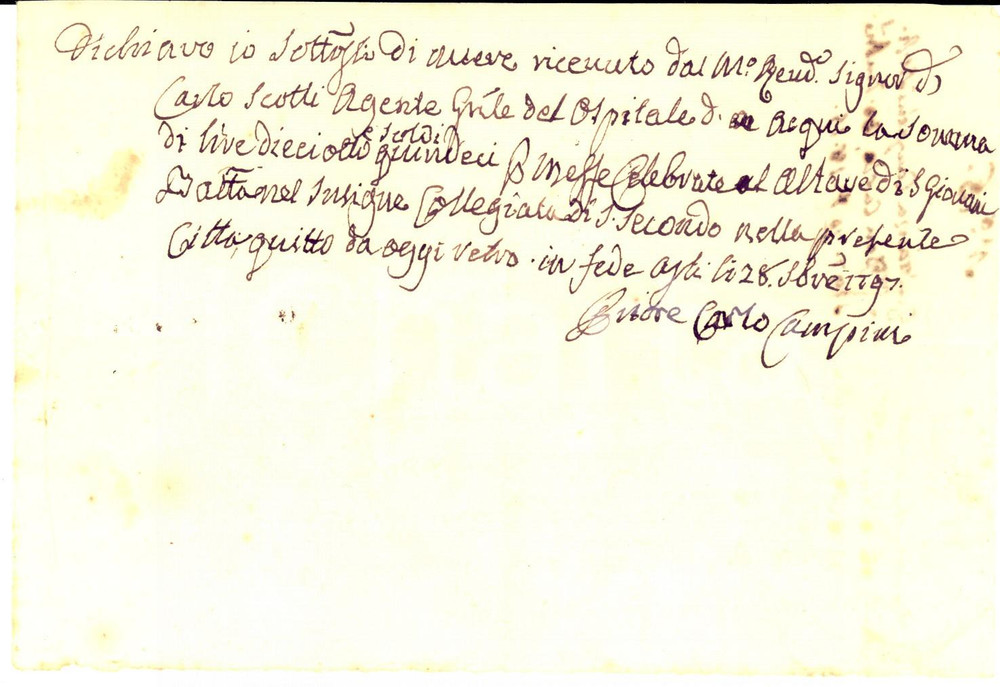 Dichiaro io Sottos.to di avere ricevuto dal M.o Rev.d Signor D.
Carlo Scotti Agente Gnle del Ospitale d' Acqui la Somma
di lire dieciotto e Soldi quindeci P Messe Celebrate al Altare di S Giovani
Batta nel Insigne Collegiata di S. Secondo nella presente
Citta, quitto da oggi retro. in fede Asti li 28. 1797.
Carlo Campini